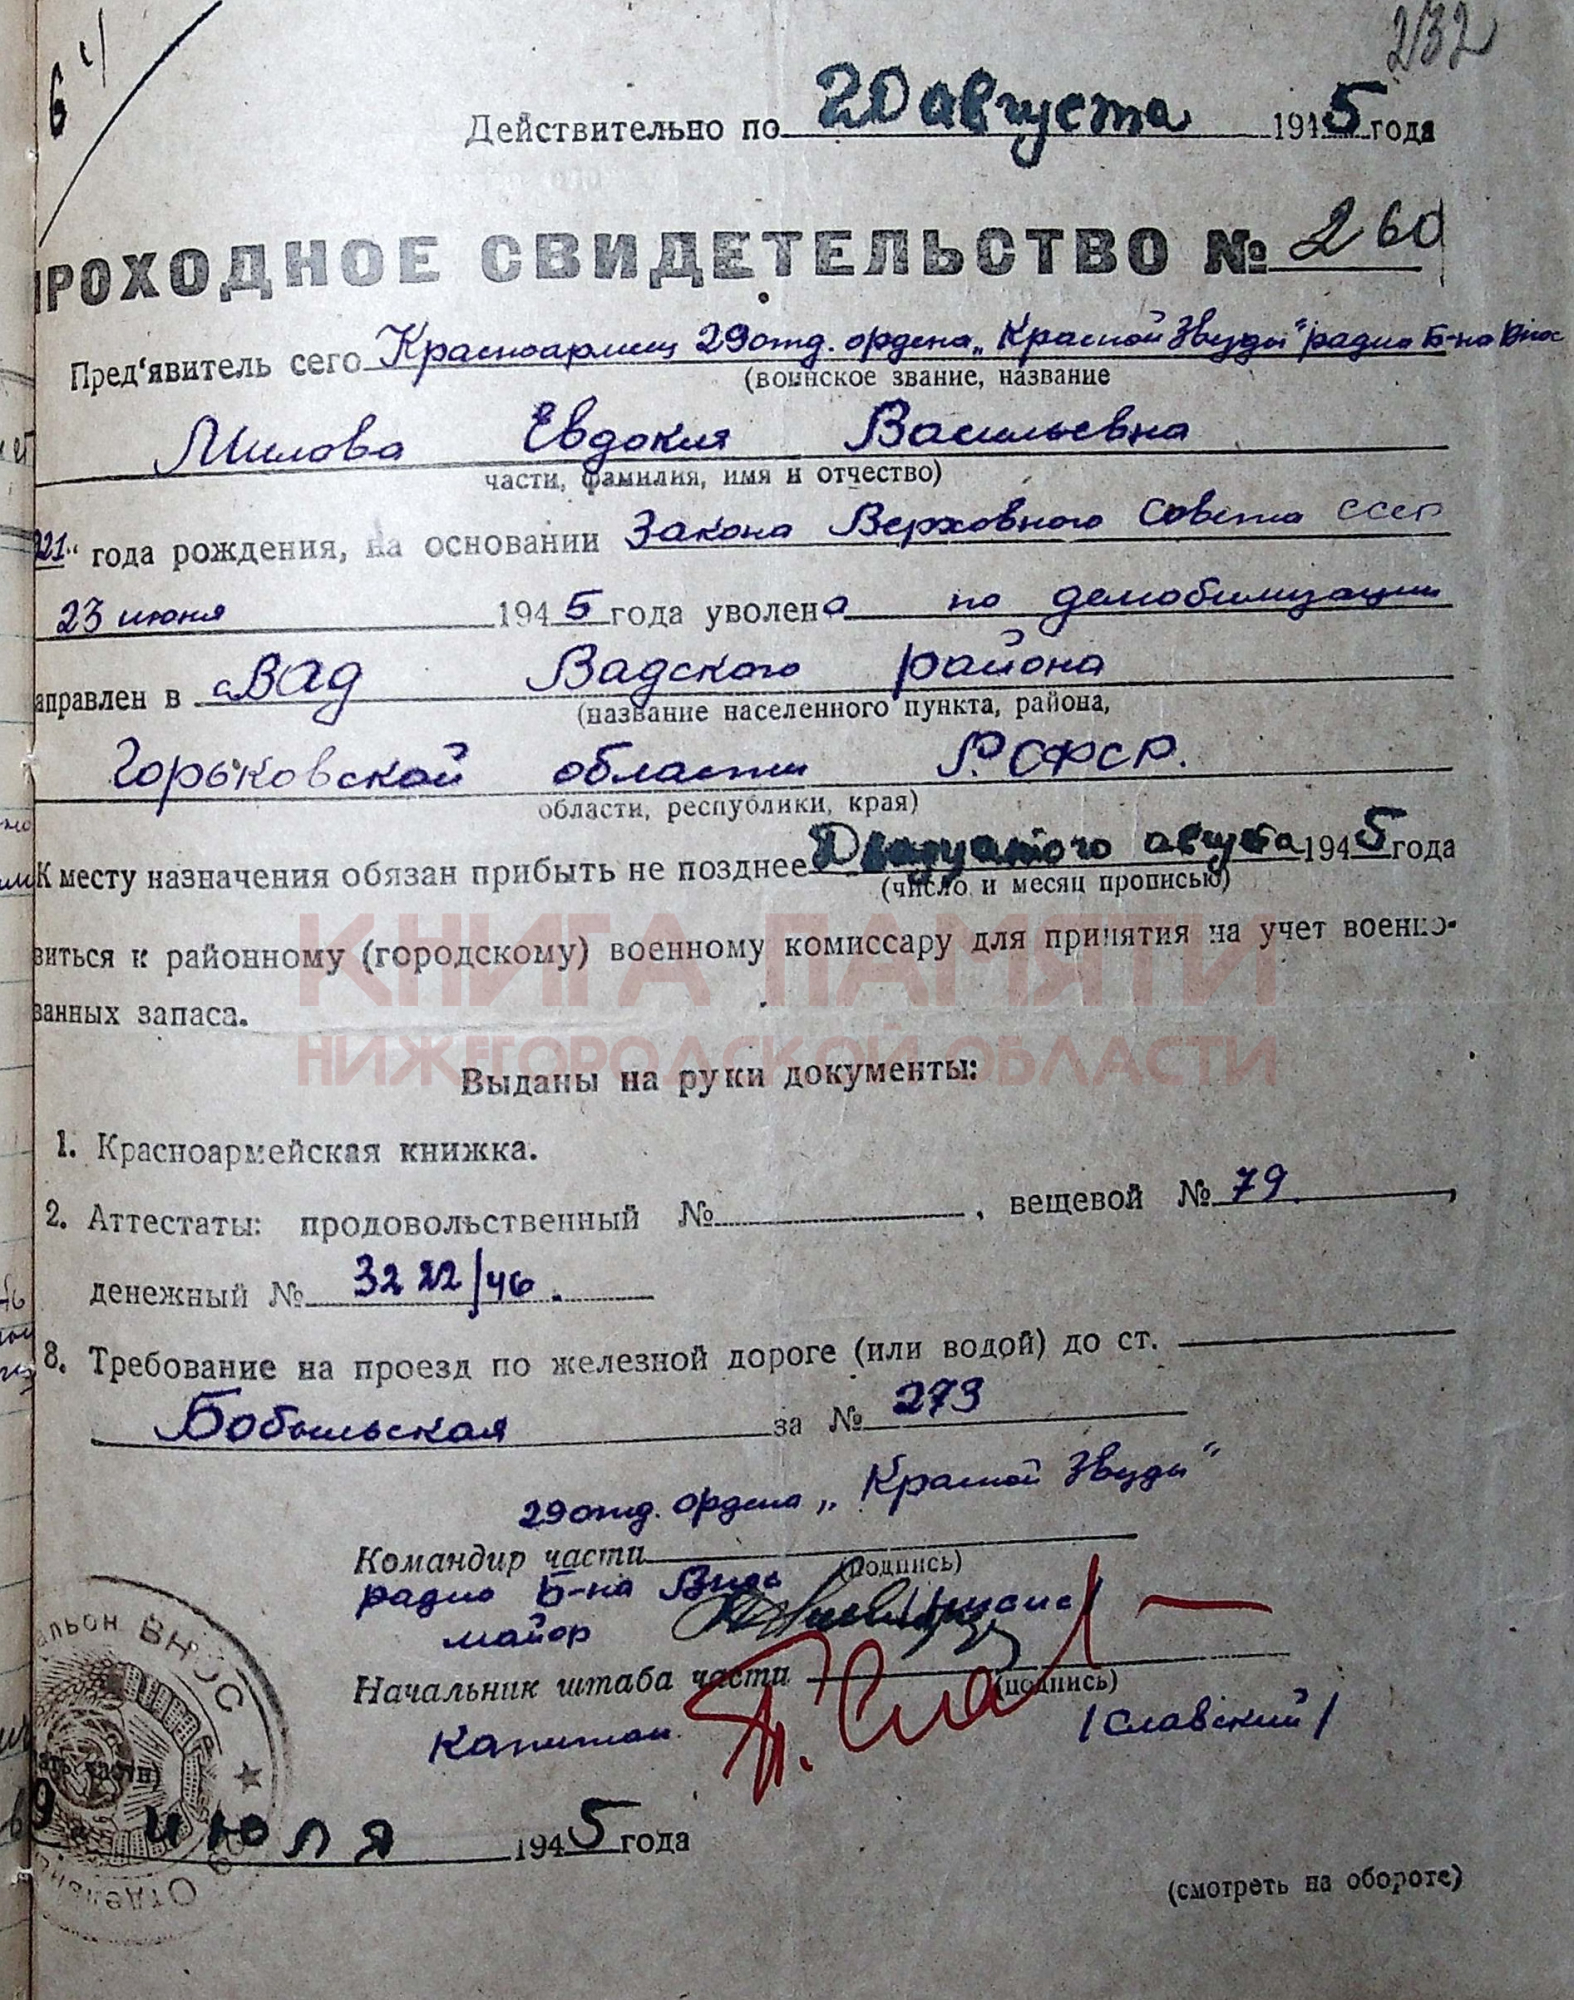 232
Действительно по 20 августа 1945 года
ПРОХОДНОЕ СВИДЕТЕЛЬСТВО № 260
Пред'явитель сего Красноармеец 29 отд. ордена „Красной Звезды" радио Б-на Внос
(воинское звание, название
Милова Евдокия Васильевна
части, фамилия, имя и отчество)
921" года рождения, на основании Закона Верховного Совета СССР
23 июня 1945 года уволена по демобилизации
аправлен в с Вад Вадского района
(название населенного пункта, района,
Горьковской области РСФСР.
области, республики, края)
К месту назначения обязан прибыть не позднее Двадцатого августа 1945 года
(число и месяц прописью)
виться к районному (городскому) военному комиссару для принятия на учет военно-
занных запаса.
КНИГА ПАМЯТИ
НИЖЕГОРОДСКОЙ ОБЛАСТИ
Выданы на руки документы:
1. Красноармейская книжка.
2. Аттестаты: продовольственный № , вещевой № 79.,
денежный № 3222/46.
3. Требование на проезд по железной дороге (или водой) до ст.
Бобыльская за № 273
29 отд. ордена „Красной Звезды"
Командир части
(подпись)
радио Б-на Внос
майор
Начальник штаба части
(подпись)
Капитан /Славский/
альон ВНОС
ать части)
19 июля 1945 года
Отдельн
(смотреть на обороте)